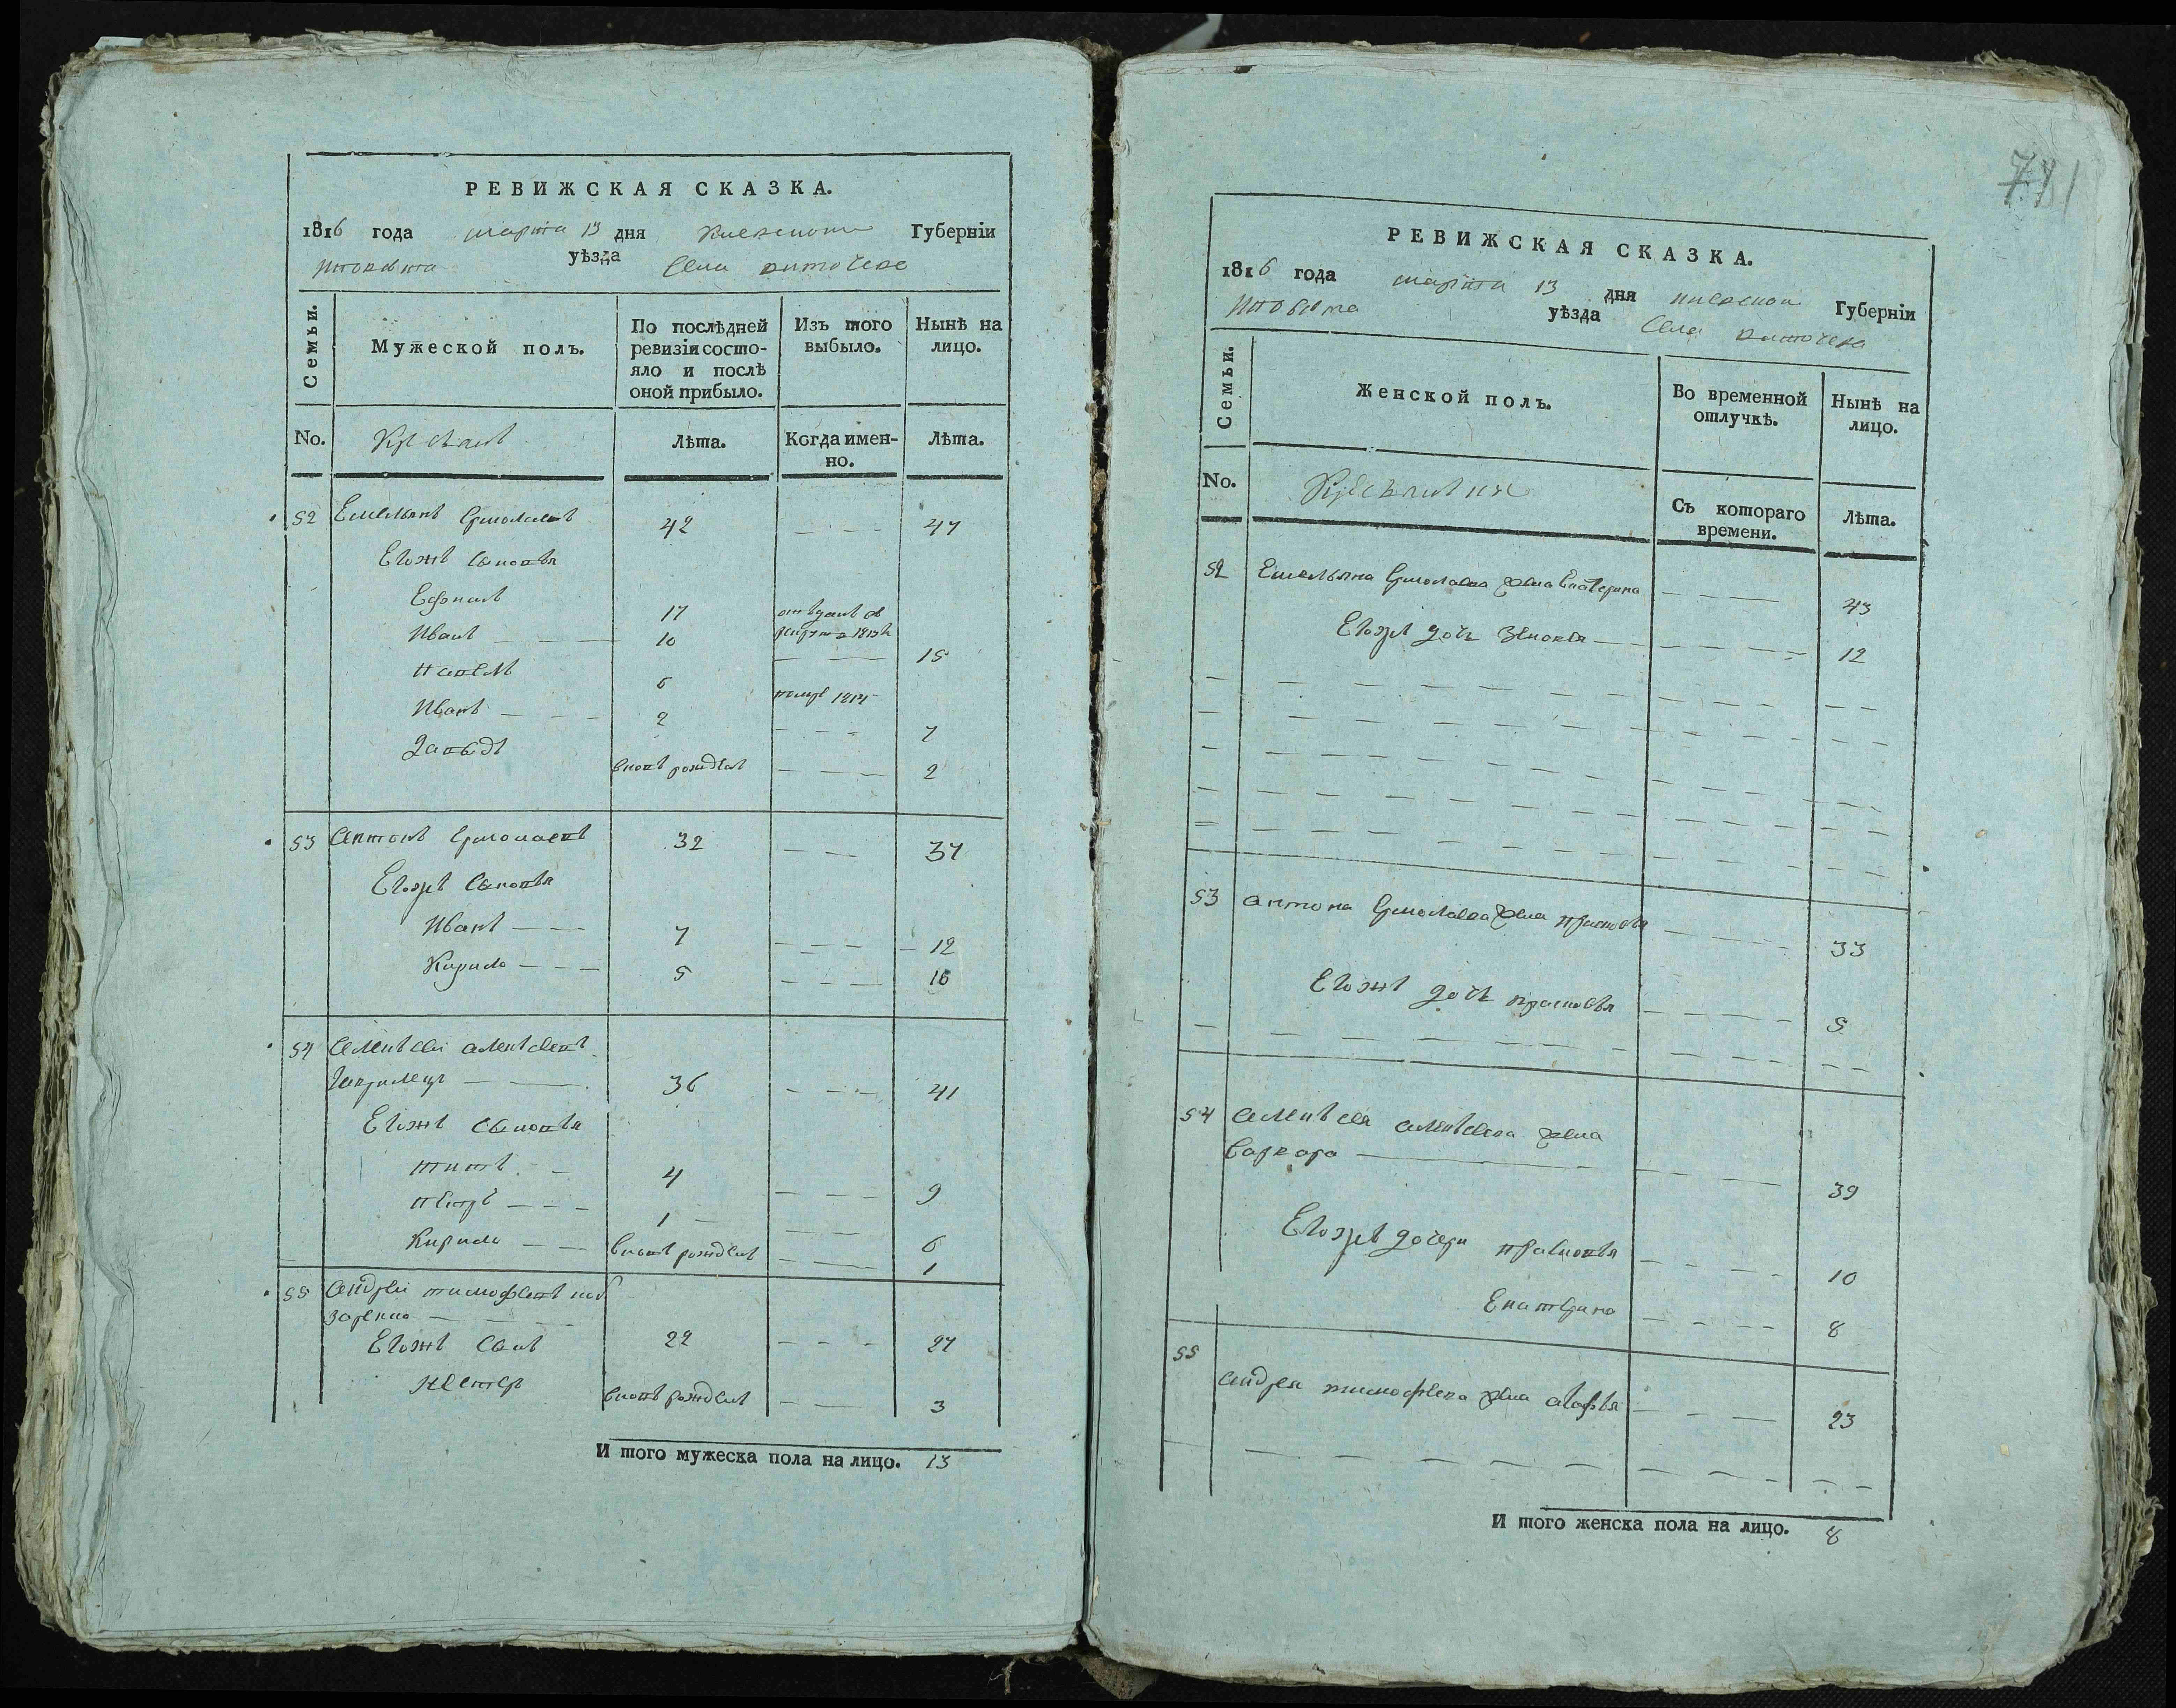 РЕВИЖСКАЯ СКАЗКА.
1816 года марта 13 дня Киевской Губерніи
уѣзда Села
Семьи.
Мужеской полъ.
По послѣдней ревизіи состояло и послѣ оной прибыло.
Изъ того выбыло.
Нынѣ на лицо.
No.
Лѣта.
Когда именно.
Лѣта.
52 Емельянъ Ермолаевъ 42 47
Егожъ сыновья
17 отъданъ въ
Иванъ 10 15
Павелъ 6 1814
Иванъ 2 7
Давыдъ вновь рожденъ 2
53 Антонъ Ермолаевъ 32 37
Егожъ сыновья
Иванъ 7 12
Кирило 5 10
54 Алексѣй Алексѣевъ
36 41
Егожъ сыновья
Титъ 4 9
Петръ 1 6
Кирило вновь рожденъ 1
55 Андрей Тимофеевъ
22 27
Егожъ сынъ
Нестеръ вновь рожденъ 3
И того мужеска пола на лицо. 13
РЕВИЖСКАЯ СКАЗКА.
1816 года марта 13 дня Киевской Губерніи
уѣзда Села
Семьи.
Женской полъ.
Во временной отлучкѣ.
Нынѣ на лицо.
No.
Съ котораго времени.
Лѣта.
52 Емельяна Ермолаева жена Екатерина 43
Егожъ дочь Зеновья 12
53 Антона Ермолаева жена Прасковья 33
Егожъ дочь Прасковья 5
54 Алексѣя Алексѣева жена
Варвара 39
Егожъ дочери Прасковья 10
Екатерина 8
55
Андрея Тимофеева жена Агафья 23
И того женска пола на лицо. 8